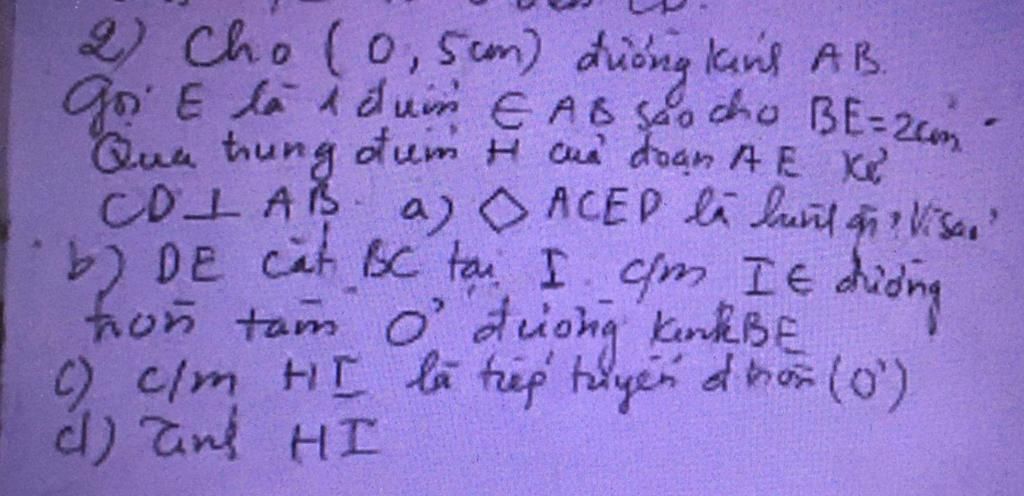 2) Cho (O, 5cm) đường kính AB.
Gọi E là 1 điểm ∈ AB sao cho BE = 2cm.
Qua trung điểm H của đoạn AE kẻ
CD ⊥ AB. a) ◇ ACED là hình gì? Vì sao?
b) DE cắt BC tại I. c/m I ∈ đường
tròn tâm O' đường kính BE
c) c/m HI là tiếp tuyến đ tròn (O')
d) Tính HI